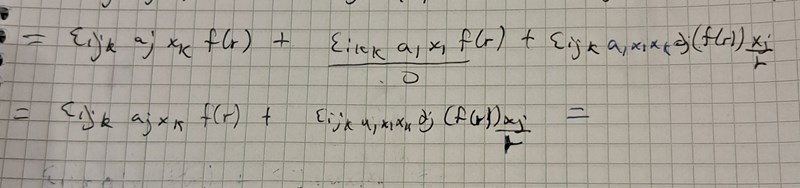 = εijk aj xk f(r) + εikk a1 x1 f(r) + εijk a1x1xk ∂j(f(r)) xj/r
0
= εijk aj xk f(r) + εijk a1x1xk ∂j (f(r)) xj/r =